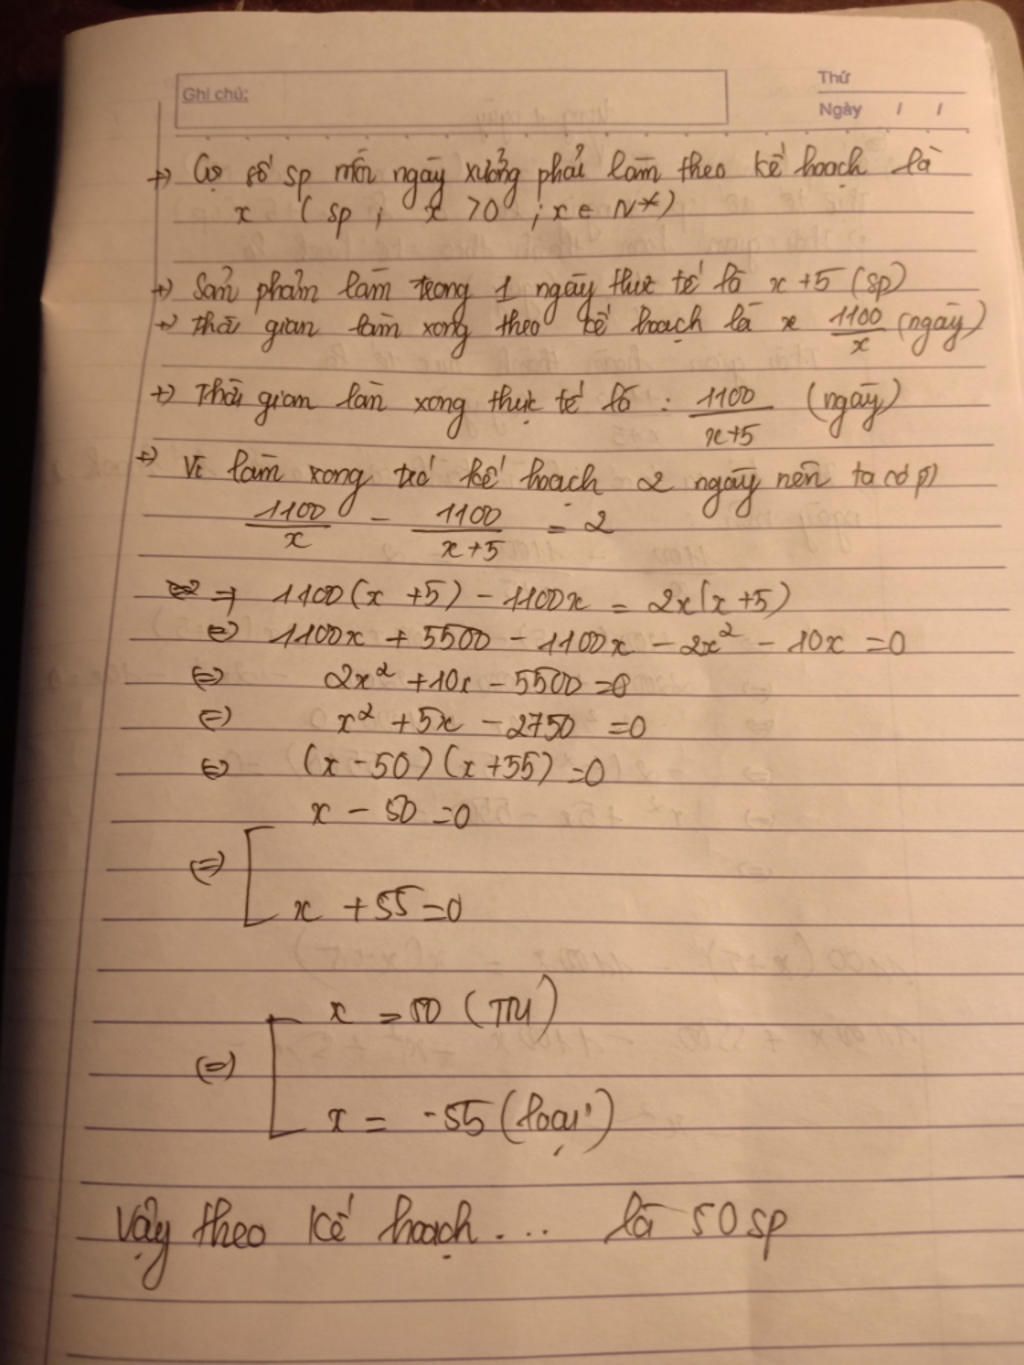 Ghi chú:
Thứ
Ngày / /
+> Gọi số sp mỗi ngày xưởng phải làm theo kế hoạch là
x (sp ; x >0 ; x ∈ N*)
+> Sản phẩm làm trong 1 ngày thực tế là x +5 (sp)
+> Thời gian làm xong theo kế hoạch là 1100/x (ngày)
+> Thời gian làm xong thực tế là : 1100/x+5 (ngày)
+> Vì làm xong trước kế hoạch 2 ngày nên ta có pt
1100/x - 1100/x+5 = 2
=> 1100(x +5) - 1100x = 2x(x+5)
<=> 1100x + 5500 - 1100x - 2x² - 10x =0
<=> 2x² +10x - 5500 =0
<=> x² + 5x - 2750 =0
<=> (x -50) (x +55) =0
x - 50 =0
<=> [
x +55 =0
x = 50 (TM)
<=> [
x = -55 (loại)
Vậy theo kế hoạch ... là 50 sp